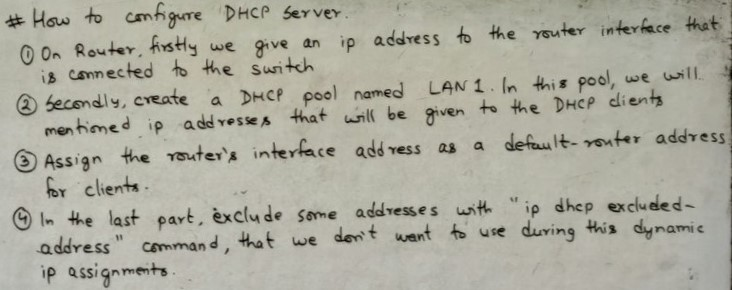 # How to configure DHCP Server.
① On Router, firstly we give an ip address to the router interface that
is connected to the switch
② Secondly, create a DHCP pool named LAN 1. In this pool, we will
mentioned ip addresses that will be given to the DHCP clients
③ Assign the router's interface address as a default-router address
for clients.
④ In the last part, exclude some addresses with "ip dhcp excluded-
address" command, that we don't want to use during this dynamic
ip assignments.